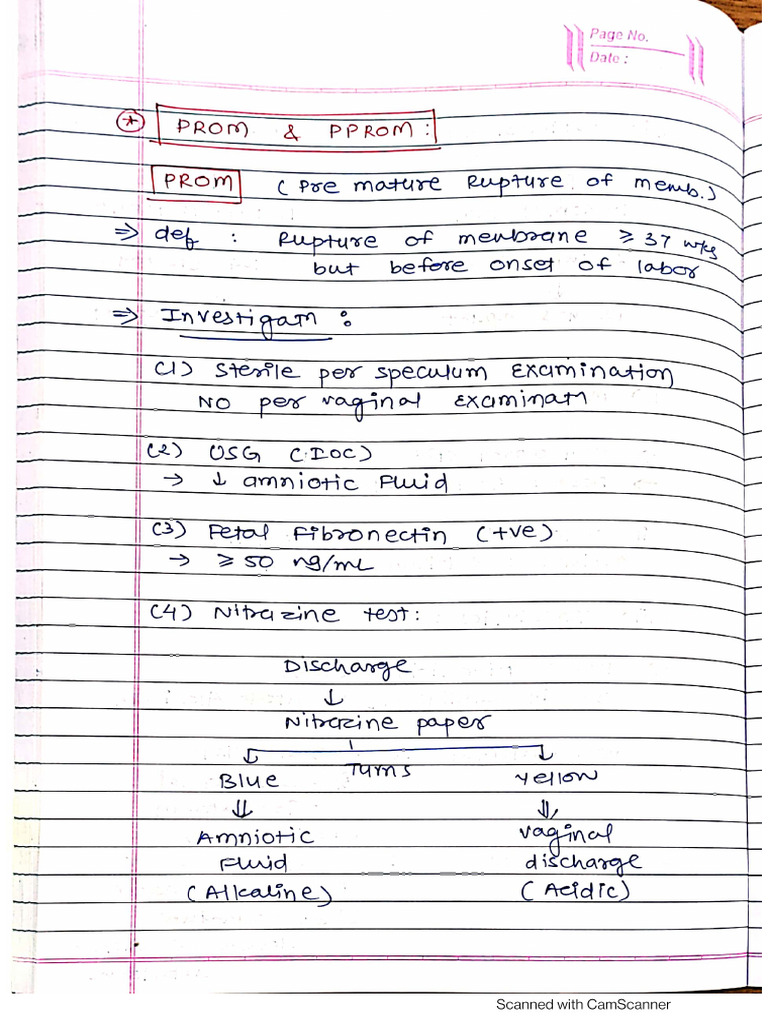 Page No.
Date :
* PROM & PPROM :
PROM (Pre mature Rupture of memb.)
⇒ def : Rupture of membrane ≥ 37 wks
but before onset of labor
⇒ Investigatn :
(1) Sterile per speculum Examination
NO per vaginal Examinatn
(2) USG (IOC)
→ ↓ amniotic Fluid
(3) Fetal Fibronectin (+ve)
→ ≥ 50 ng/mL
(4) Nitrazine test :
Discharge
↓
Nitrazine paper
Turns
Blue Yellow
⇓ ⇓
Amniotic vaginal
Fluid discharge
(Alkaline) (Acidic)
Scanned with CamScanner